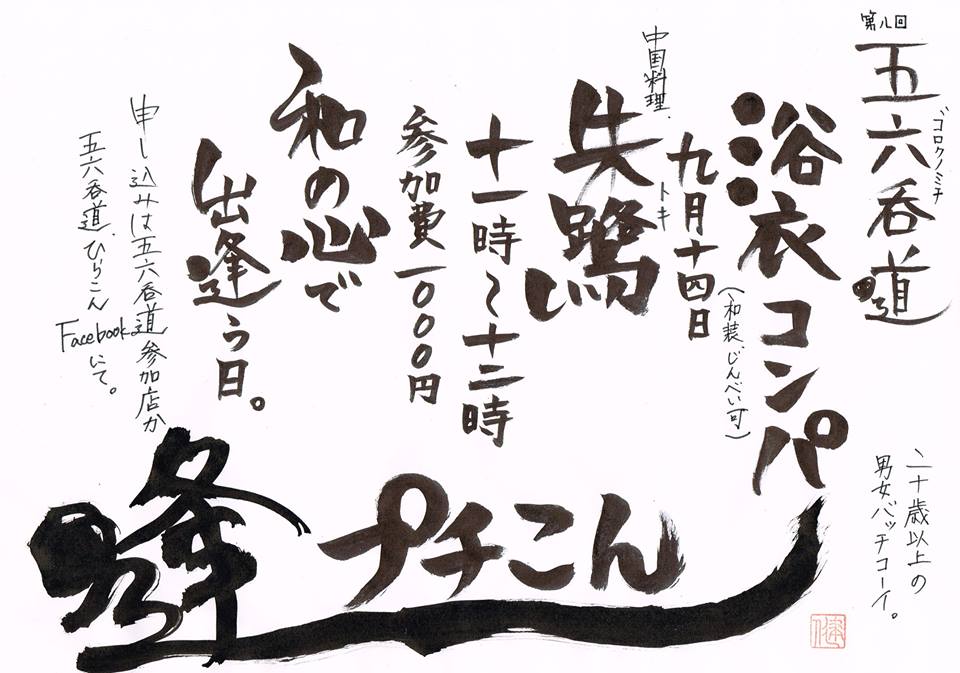 第八回
五六呑道
ゴロクノミチ
浴衣コンパ
(和装、じんべい可)
九月十四日
中国料理
朱鷺
トキ
十一時〜十二時
参加費一〇〇〇円
和の心で
出逢う日。
申し込みは五六呑道参加店か
五六呑道、ひらこん
Facebookにて。
二十歳以上の
男女バッチコーイ。
逢
プチこん